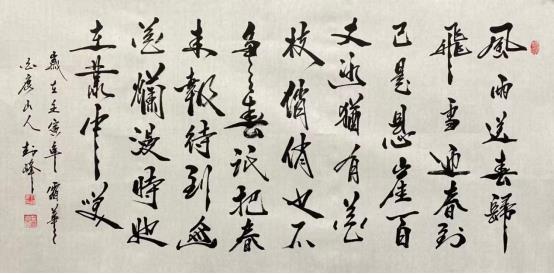 風雨送春歸
飛雪迎春到
已是懸崖百
丈冰猶有花
枝俏俏也不
爭春祇把春
来報待到山
花爛漫時她
在叢中笑
歲在壬寅年
山人